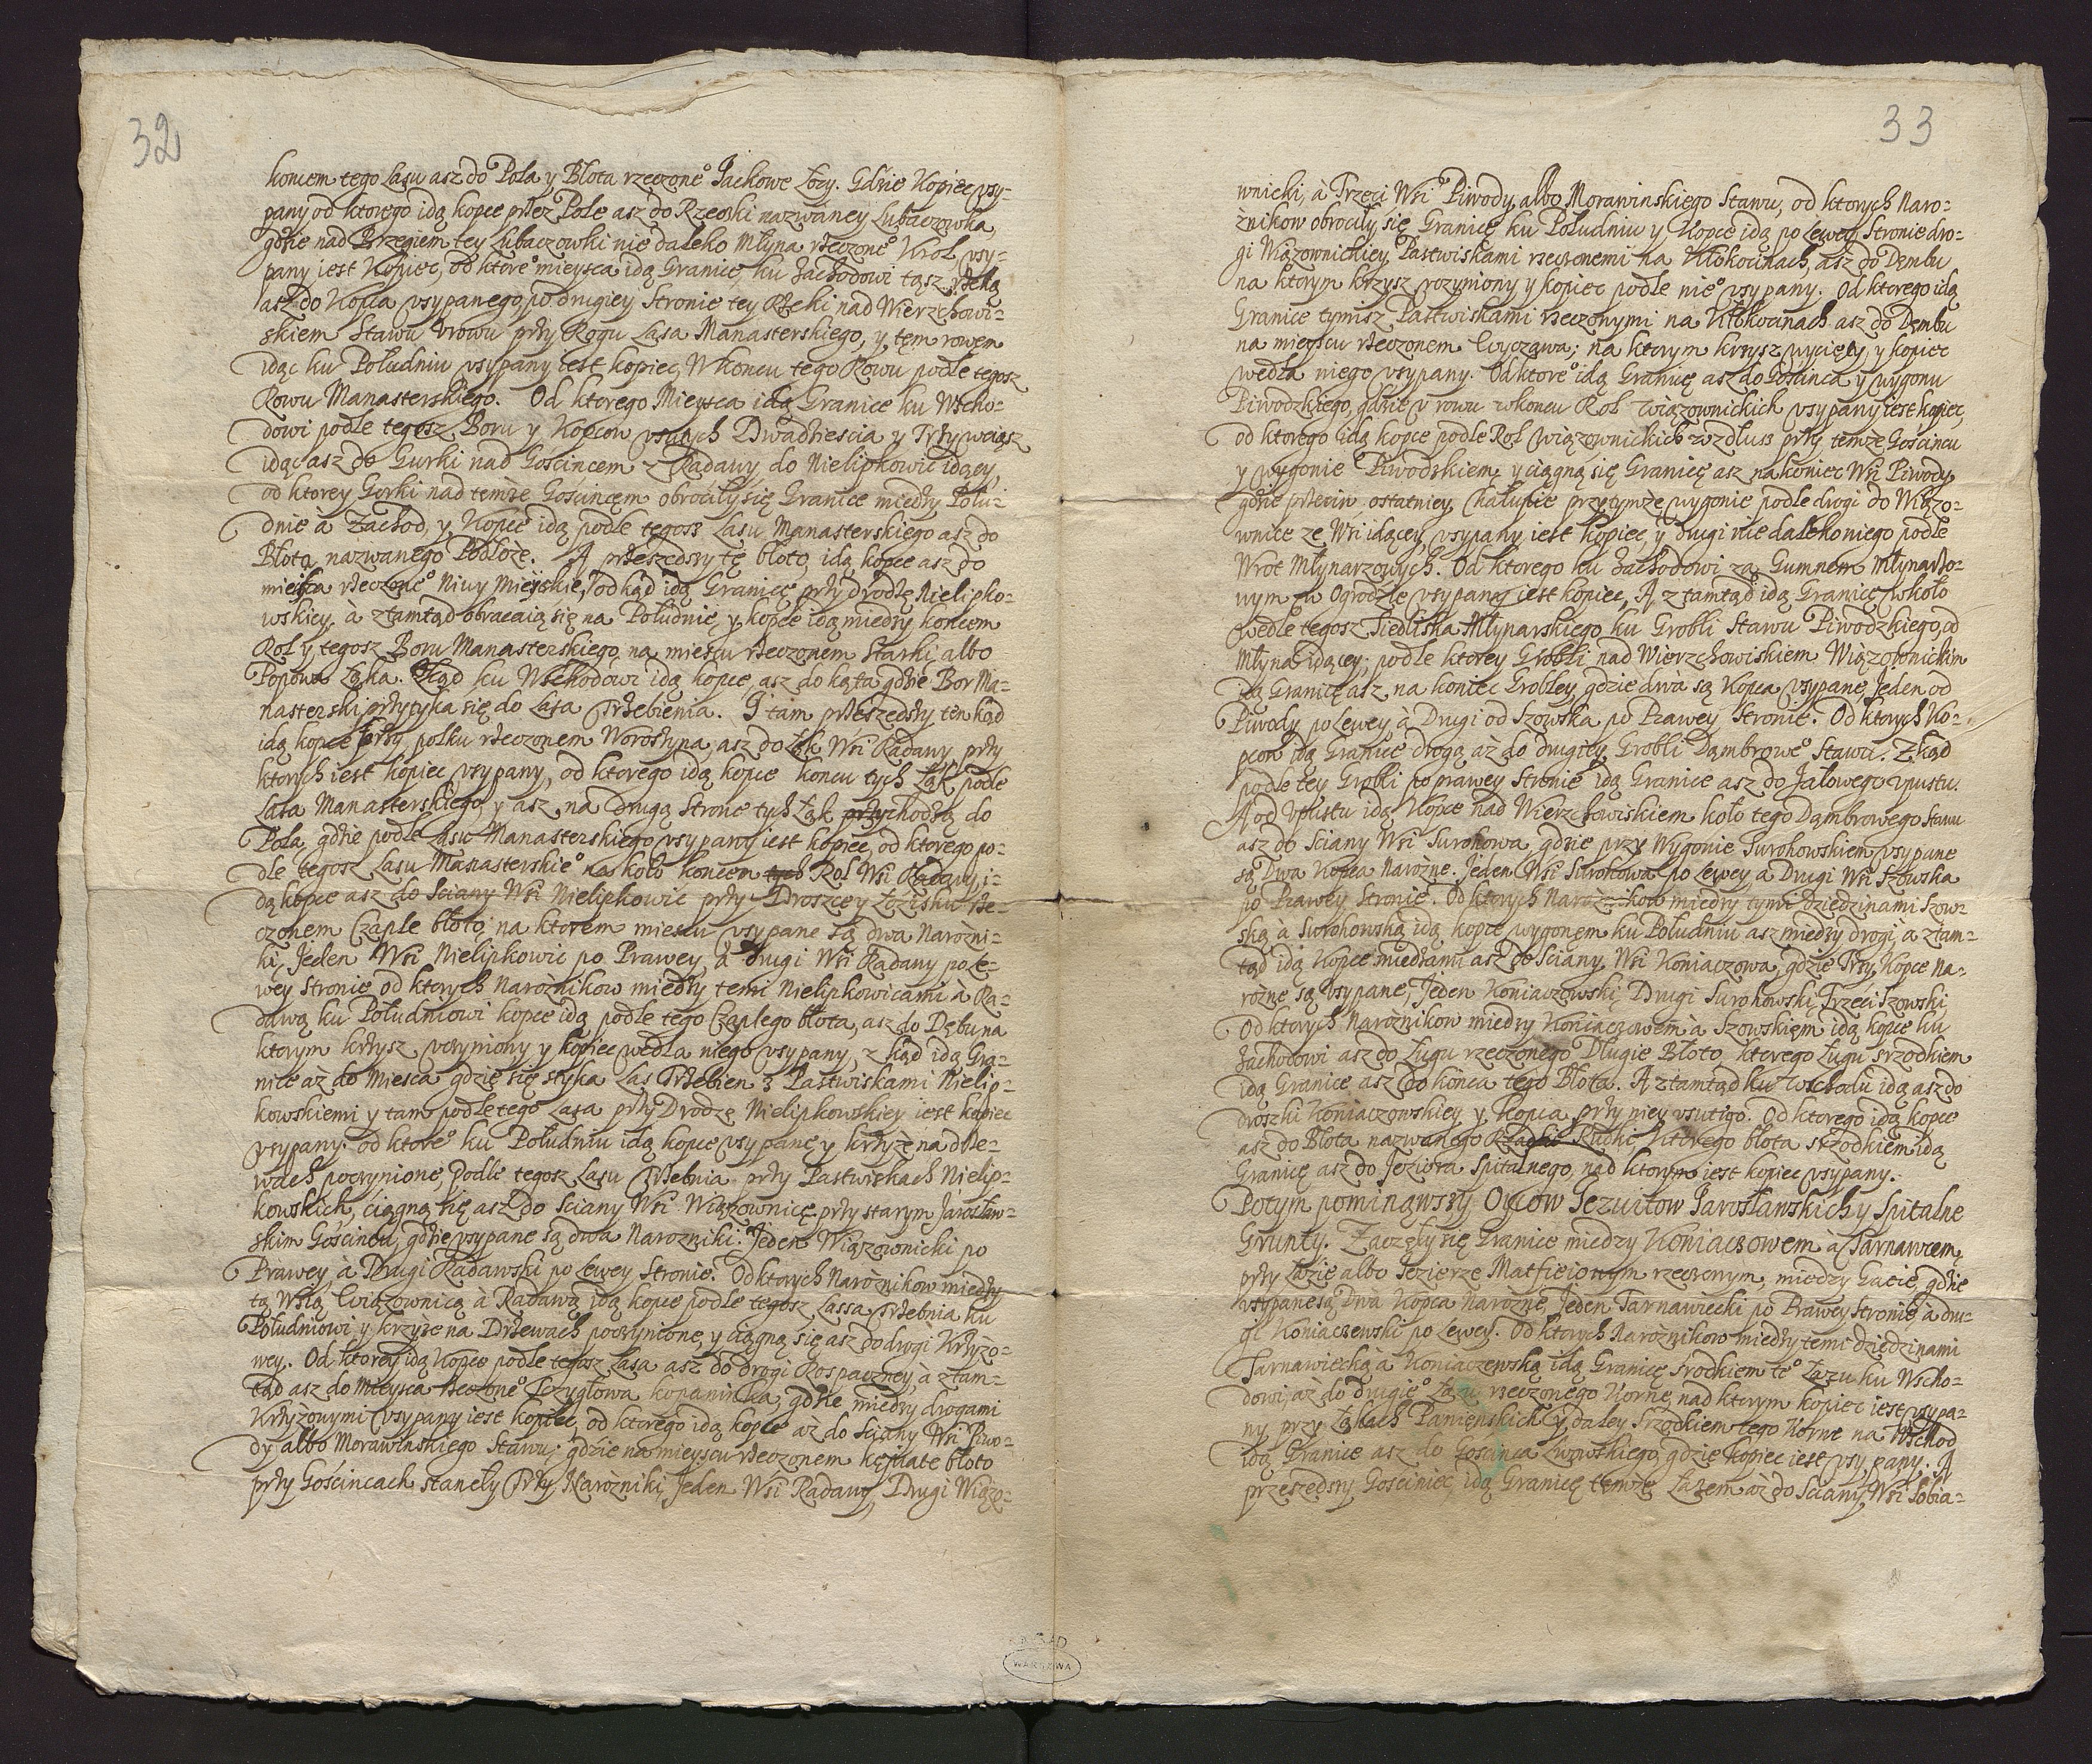 32
koncem tego Lasu asz do Pola y Błota rzeczone° Jackowe Łozy. Gdzie Kopiec vsy-
pany od ktorego idą kopce przez Pole asz do Rzeczki nazwaney Lubaczowka,
gdzie nad Brzegiem tey Lubaczowki nie daleko Młyna rzeczone° Krol vsy-
pany iest Kopiec, od ktore° mieysca idą Granice, ku Zachodowi tąsz rzeką
asz do Kopca vsypanego, po drugiey Stronie tey Rzeki nad Wierzchowi-
skiem Stawu Vrowu przy Rogu Lasa Manasterskiego, y tęm rowem
idąc ku Południu vsypany iest kopiec, W koncu tego Rowu podle tegosz
Rowu Manasterskiego. Od ktorego Mieysca idą Granice ku Wscho-
dowi podle tegosz Boru y Kopcow vsutych Dwadziescia y Trzy wciąsz
idąc asz do Gurki nad Goscincem z Radawy do Nielipkowic idącey,
od ktorey Gorki nad temże Gościncęm obrociły się Granice miedzy Połu-
dnie à Zachod, y Kopce idą podle tegosz Lasu Manasterskiego asz do
Błota nazwanego Podłoże. A przeszedszy tę błoto, idą kopce asz do
mieysca rzeczone° Niwy Mieyskie, odkąd idą Granicę przy drodzę Nielipko-
wskiey, à ztamtąd obracaią się na Południe, y kopce idą miedzy koncem
Rol y tegosz Boru Manasterskiego na miescu rzeczonem Starki albo
Popowa Łąka. Zkąd ku Wschodowi idą kopce, asz do kąta gdzie Bor Ma-
nasterski przytyka się do Lasa Trzebienia. I tam przeszedszy ten kąd
idą kopce przy polku rzeczonem Worostyna, asz do Łąk Wsi Radawy, przy
ktorych iest kopiec vsypany, od ktorego idą kopce koncu tych Łąk podle
Lasa Manasterskiego, y asz na drugą Strone tych Łąk przychodzą do
Pola, gdzie podle Lasu Manasterskiego vsypany iest kopiec, od ktorego po-
dle tegosz Lasu Manasterskie° naskoło koncem tych Rol Wsi Radawy, i-
dą kopce asz do Sciany Wsi Nielipkowic przy Droszcey Łozisku rze-
czonem Czaple błoto, na ktorem miescu vsypane są dwa Narozni-
ki, Jeden Wsi Nielipkowic po Prawey, a drugi Wsi Radawy po Le-
wey Stronie, od ktorych Narożnikow miedzy temi Nielipkowicami à Ra-
dawą ku Południowi kopce idą podle tego Czaplego błota, asz do Dębu na
ktorym krzysz vczyniony y kopiec wedla niego vsypany, z kąd idą Gra-
nice aż do Miesca gdzie się styka Las Trzebien z Pastwiskami Nielip-
kowskiemi y tam podle tego Lasa przy Drodze Nielipkowskiey iest kopiec
vsypany. od ktore° ku Południu idą kopce vsypanę y krzyże na drze-
wach poczynione, podle tegosz Lasu Trzebnia przy Pastwiskach Nielip-
kowskich, ciągną się asz do Sciany Wsi Wiązownicę przy starym Jarosław-
skim Gościncu, gdzie vsypane są dwa Narozniki. Jeden Wiązownicki po
Prawey, à Drugi Radawski po Lewey Stronie. Od ktorych Narożnikow miedzy
tą Wsią Wiązownicą à Radawą idą kopce podle tegosz Lassa Trzebnia ku
Południowi, y krzyże na Drzewach poczynione, y ciągną się asz do drogi Krzyżo-
wey. Od ktorey idą Kopce podle tegosz Lasa asz do drogi Rospaczney, à ztam-
tąd asz do Mieysca rzeczone° Szczygłowa kopaninka, gdzie miedzy drogami
Krzyżowymi vsypany iest kopiec, od ktorego idą kopce aż do Sciany Wsi Piwo-
dy albo Morawinskiego Stawu; gdzie na mieyscu rzeczonem kępiate błoto
przy Gościncach staneły Trzy Narożniki, Jeden Wsi Radawy, Drugi Wiązo-
33
wnicki, à Trzeci Wsi Piwody, albo Morawinskiego Stawu, od ktorych Naro-
żnikow obrociły się Granicę, ku Południu y Kopce idą po Lewey Stronie dro-
gi Wiązownickiey, Pastwiskami rzeczonemi na Kłokocinach, asz do Dębu
na ktorym krzysz vczyniony y kopiec podle nie° vsypany. Od ktorego idą
Granice tymisz Pastwiskami rzeczonymi na Kłokocinach asz do Dębu
na mieyscu rzeczonem Wyczawa; na ktorym krzysz wycięty, y kopiec
wedla niego vsypany. Od ktore° idą Granicę asz do Gościnca y wygonu
Piwodzkiego, gdzie v rowu w koncu Rol Wiązownickich vsypany iest kopiec,
od ktorego idą kopce podle Rol Wiązownickich wzdłusz przy temże Gościncu
y wygonie Piwodskiem, y ciągną się Granicę asz na koniec Wsi Piwody,
gdzie przeciw ostatniey Chałupie przy tymże wygonie podle drogi do Wiązo-
wnice ze Wsi idącey, vsypany iest kopiec, y drugi nie daleko niego podle
Wrot Młynarzowych. Od ktorego ku Zachodowi za Gumnem Młynarzo-
wym w Ogrodzie vsypany iest kopiec, A ztamtąd idą Granice wkoło
wedle tegosz Siedliska Młynarskiego ku Grobli Stawu Piwodzkiego, od
Młyna idącey, podle ktorey Grobli nad Wierzchowiskiem Wiązownickim
idą Granicę asz na koniec Grobley, gdzie dwa są Kopca vsypane, Jeden od
Piwody po Lewey, à Drugi od Szowska po Prawey Stronie. Od ktorych Ko-
pcow idą Granice drogą aż do drugiey Grobli Dąmbrowe° Stawu. Zkąd
podle tey Grobli po prawey Stronie idą Granice asz do Jałowego vpustu.
A od Vpustu idą Kopce nad Wierzchowiskiem koło tego Dąmbrowego Stawu
asz do Sciany Wsi Surohowa, gdzie przy Wygonie Surohowskiem vsypane
są Dwa Kopca Narożne. Jeden Wsi Surohowa po Lewey, à Drugi Wsi Szowska
po Prawey Stronie. Od ktorych Narożnikow miedzy tymi dziedzinami Szow-
ską à Surohowską idą kopce wygonem ku Południu asz miedzy drogi, a ztam-
tąd idą Kopce miedzami asz do Sciany Wsi Koniaczowa, gdzie Trzy Kopce Na-
rożne są vsypane, Jeden Koniaczowski, Drugi Surohowski, Trzeci Szowski,
Od ktorych Narożnikow miedzy Koniaczowem à Szowskięm idą kopce ku
Zachodowi asz do Ługu rzeczonego Długie Błoto, ktorego Ługu srzodkiem
idą Granice asz do końca tego Błota. A ztamtąd ku Wschodu idą asz do
droszki Koniaczowskiey y Kopca przy niey vsutego. Od ktorego idą kopce
asz do Błota nazwanego Rudki, ktorego błota srzodkiem idą
Granicę asz do Jeziora Spitalnego, nad ktorym iest kopiec vsypany.
Potym pominąwszy Oycow Jezuitow Jarosławskich y Spitalne
Grunty. Zaczęły się Granice miedzy Koniaczowem à Tarnawcem,
przy Łazie albo Jezierze Matfieiowym rzeczonym, miedzy Gacie, gdzie
vsypane są Dwa Kopca Narożne, Jeden Tarnawiecki po Prawey Stronie, à dru-
gi Koniaczewski po Lewey. Od ktorych Narożnikow miedzy temi dziedzinami
Tarnawiecką à Koniaczewską idą Granicę srodkiem te° Łazu ku Wscho-
dowi, aż do drugie° Łazu rzeczonego Korne, nad ktorym kopiec iest vsypa-
ny przy Łąkach Panięnskich, y daley Srzodkiem tego Korne na Wschod
idą Granice asz do Gościnca Lwowskiego, gdzie kopiec iest vsypany. A
przeszedszy Gosciniec, idą Granicę temże Łazem aż do Sciany Wsi Sobia-
WARSZAWA